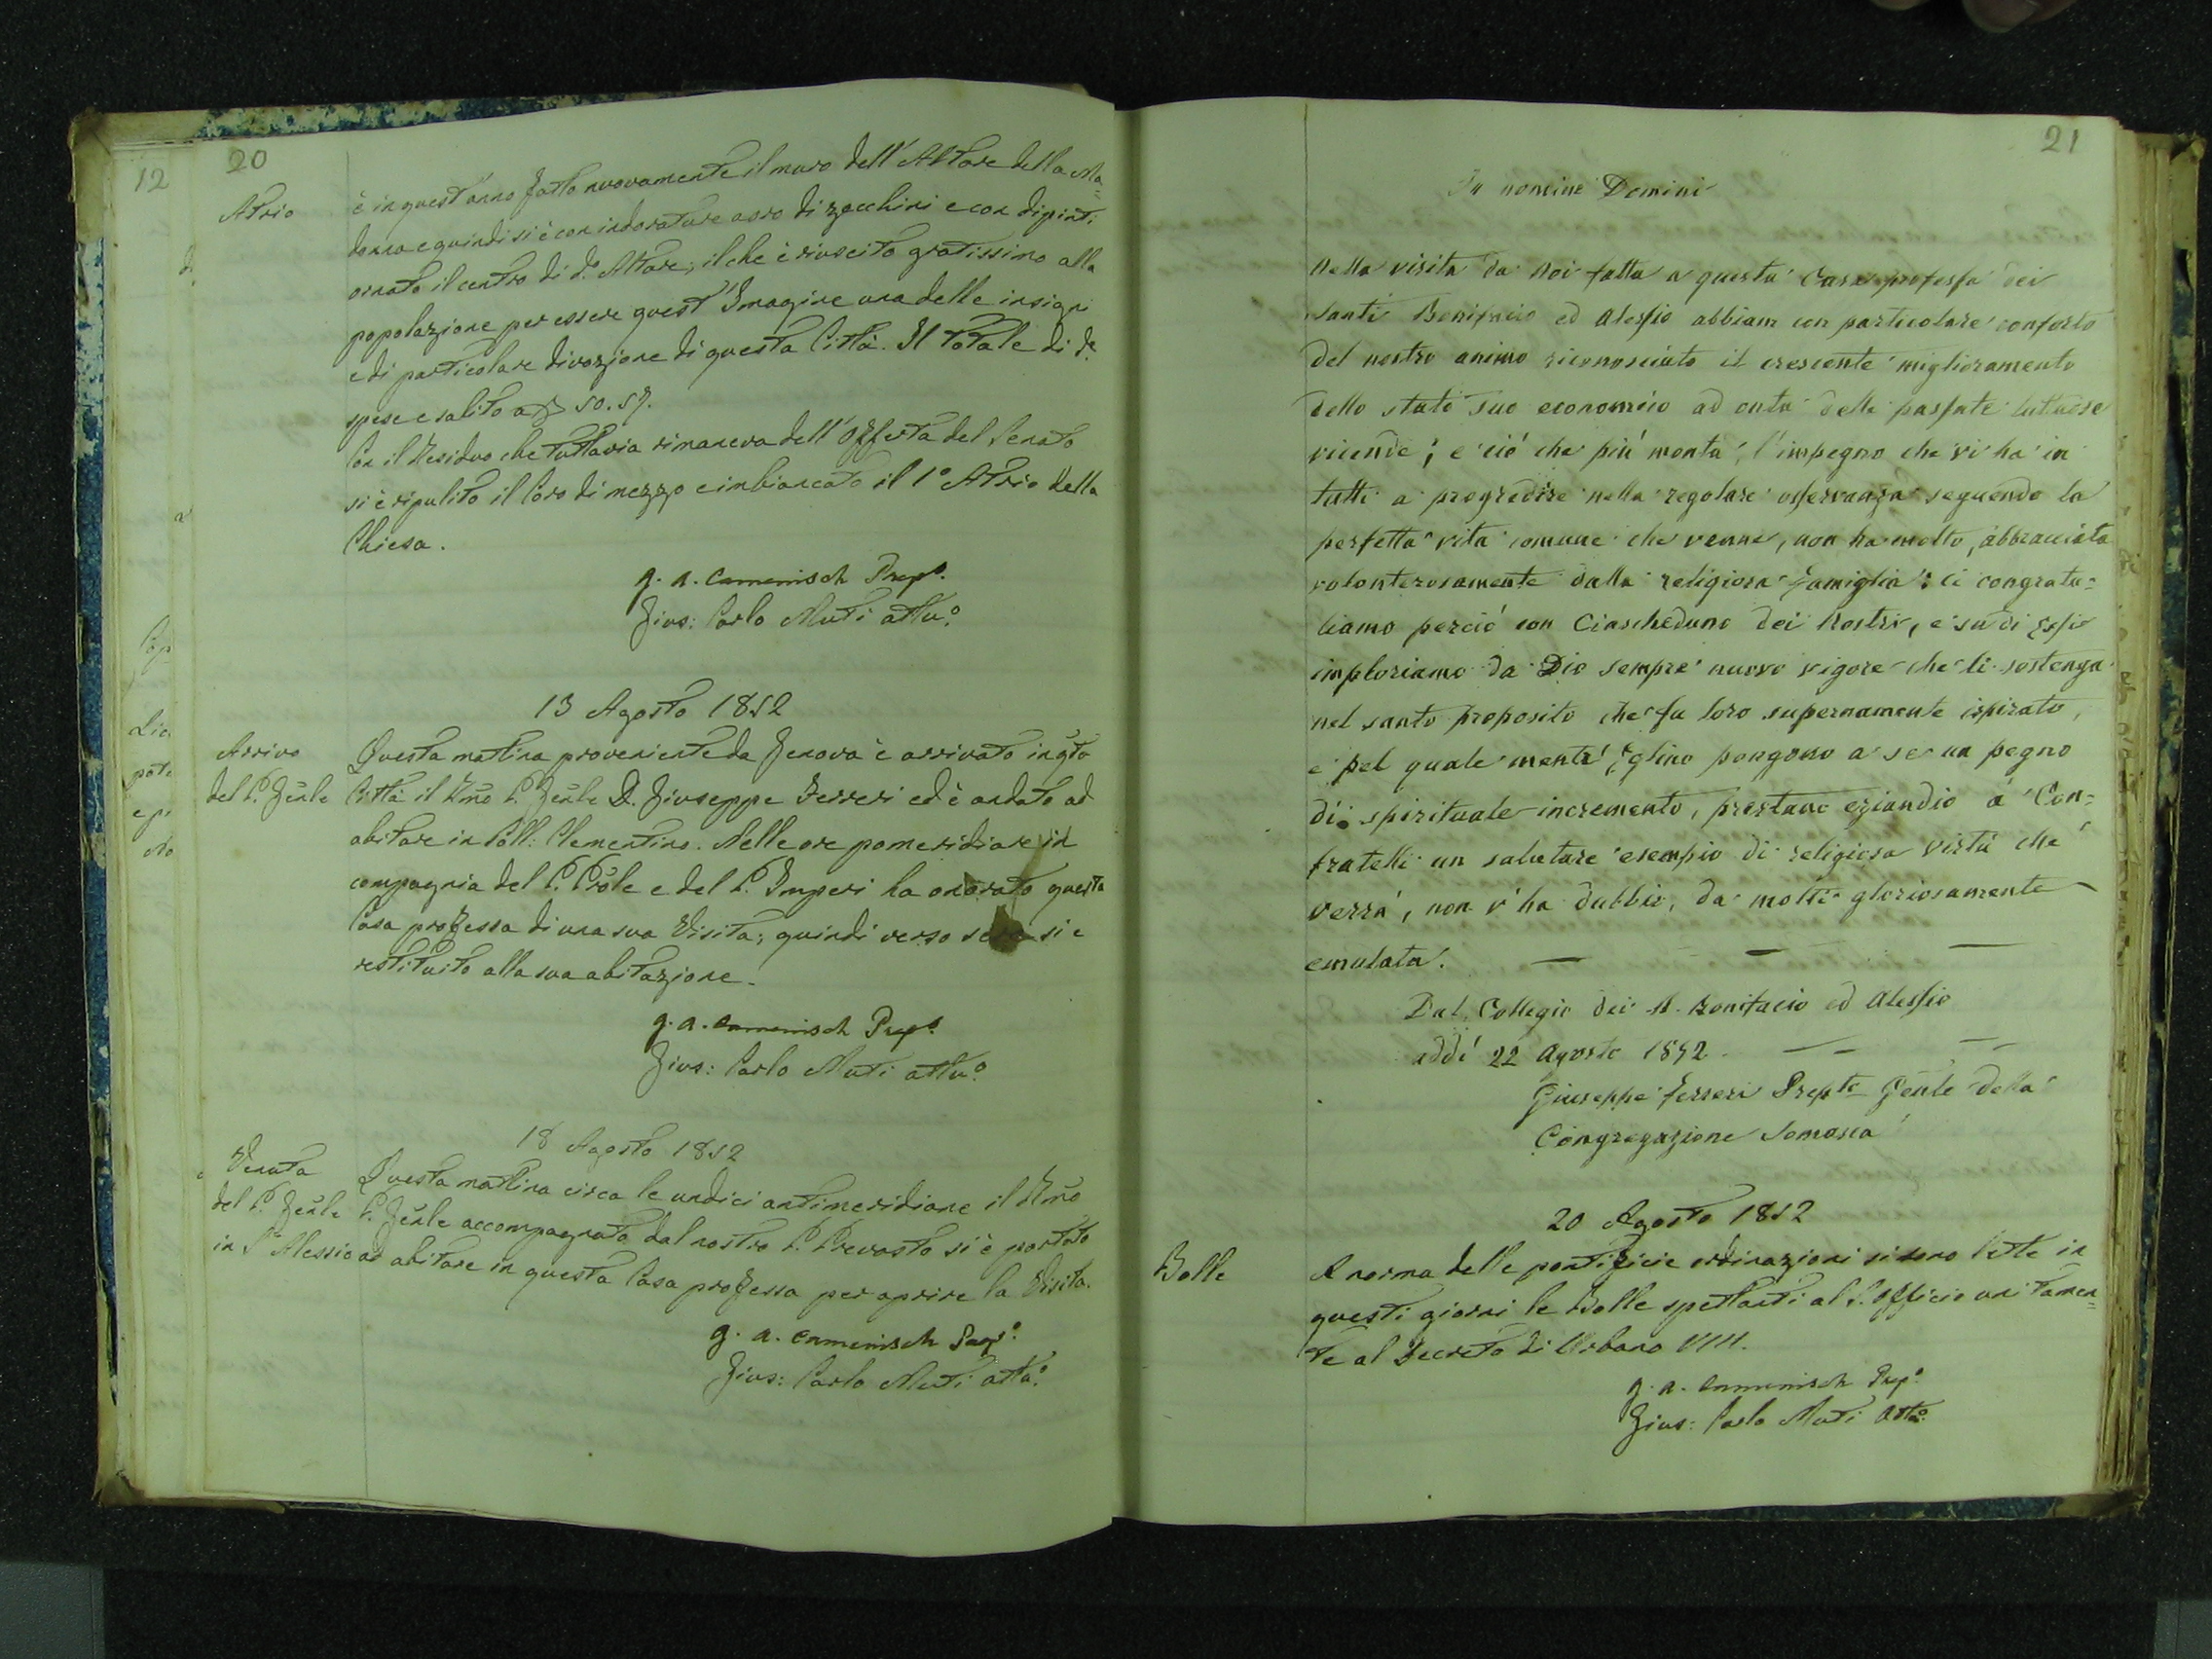 20
Atrio
è in quest'anno fatto nuovamente il muro dell'Altare della Ma=
donna e quindi si è con indorature a oro di zecchini e con dipinti
ornato il centro di d.º Altare; il che è riuscito gratissimo alla
popolazione per essere quest'Imagine una delle insigni
e di particolare divozione di questa Città. Il totale di d.e
spese e salito a 50.57.
Con il Residuo che tuttavia rimaneva dell'offerta del Senato
si è ripulito il Coro di mezzo e imbiancato il 1º Atrio della
Chiesa.
G. A. Camenisch Prep.º
Gius: Carlo Muti attu.º
13 Agosto 1852
Arrivo
del P. Gẽnle
Questa mattina proveniente da Genova è arrivato in q̃ta
Città il Rm̃o P. Gẽnle D. Giuseppe Ferreri ed è andato ad
abitare in Coll: Clementino. Nelle ore pomeridiane in
compagnia del P. Prõle e del P. Imperi ha onorato questa
Casa professa di una sua Visita; quindi verso sera si e
restituito alla sua abitazione.
G. A. Camenisch Prep.º
Gius: Carlo Muti attu.º
18 Agosto 1852
Venuta
del P. Gẽnle
in S. Alessio
Questa mattina circa le undici antimeridiane il Rm̃o
P. Gẽnle accompagnato dal nostro P. Prevosto si è portato
ad abitare in questa Casa professa per aprire la Visita.
G. A. Camenisch Prep.º
Gius: Carlo Muti attu.º
21
In nomine Domini
Nella visita da Noi fatta a questa Casa professa dei
Santi Bonifacio ed Alessio abbiam con particolare conforto
del nostro animo riconosciuto il crescente miglioramento
dello stato suo economico ad onta delle passate luttuose
vicende; e ciò che più monta, l'impegno che vi ha in
tutti a progredire nella regolare osservanza seguendo la
perfetta vita comune che venne, non ha molto, abbracciata
volonterosamente dalla religiosa Famiglia: ci congratu=
liamo perciò con Ciascheduno dei Nostri, e su di Essi
imploriamo da Dio sempre nuovo vigore che li sostenga
nel santo proposito che fu loro supernamente ispirato,
e pel quale mentr'Eglino pongono a se un pegno
di spirituale incremento, prestano eziandio a' Con=
fratelli un salutare esempio di religiosa virtù che
verrà, non v'ha dubbio, da molti gloriosamente
emulata.
Dal Collegio dei SS. Bonifacio ed Alessio
addì 22 Agosto 1852
Giuseppe Ferreri Prep.to Gẽnle della
Congregazione Somasca
20 Agosto 1852
Bolle
A norma delle pontificie ordinazioni si sono lette in
questi giorni le Bolle spettanti al S. Officio unitamen=
te al Decreto di Urbano VIII.
G. A. Camenisch Prep.º
Gius: Carlo Muti Att.º